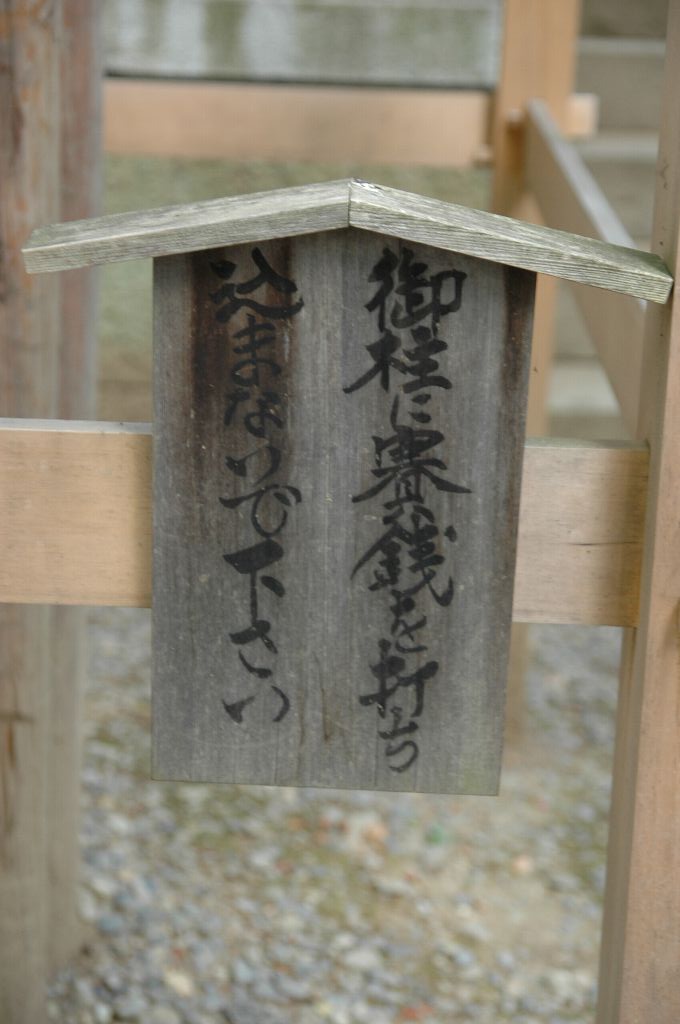 御柱に賽銭を打ち
込まないで下さい